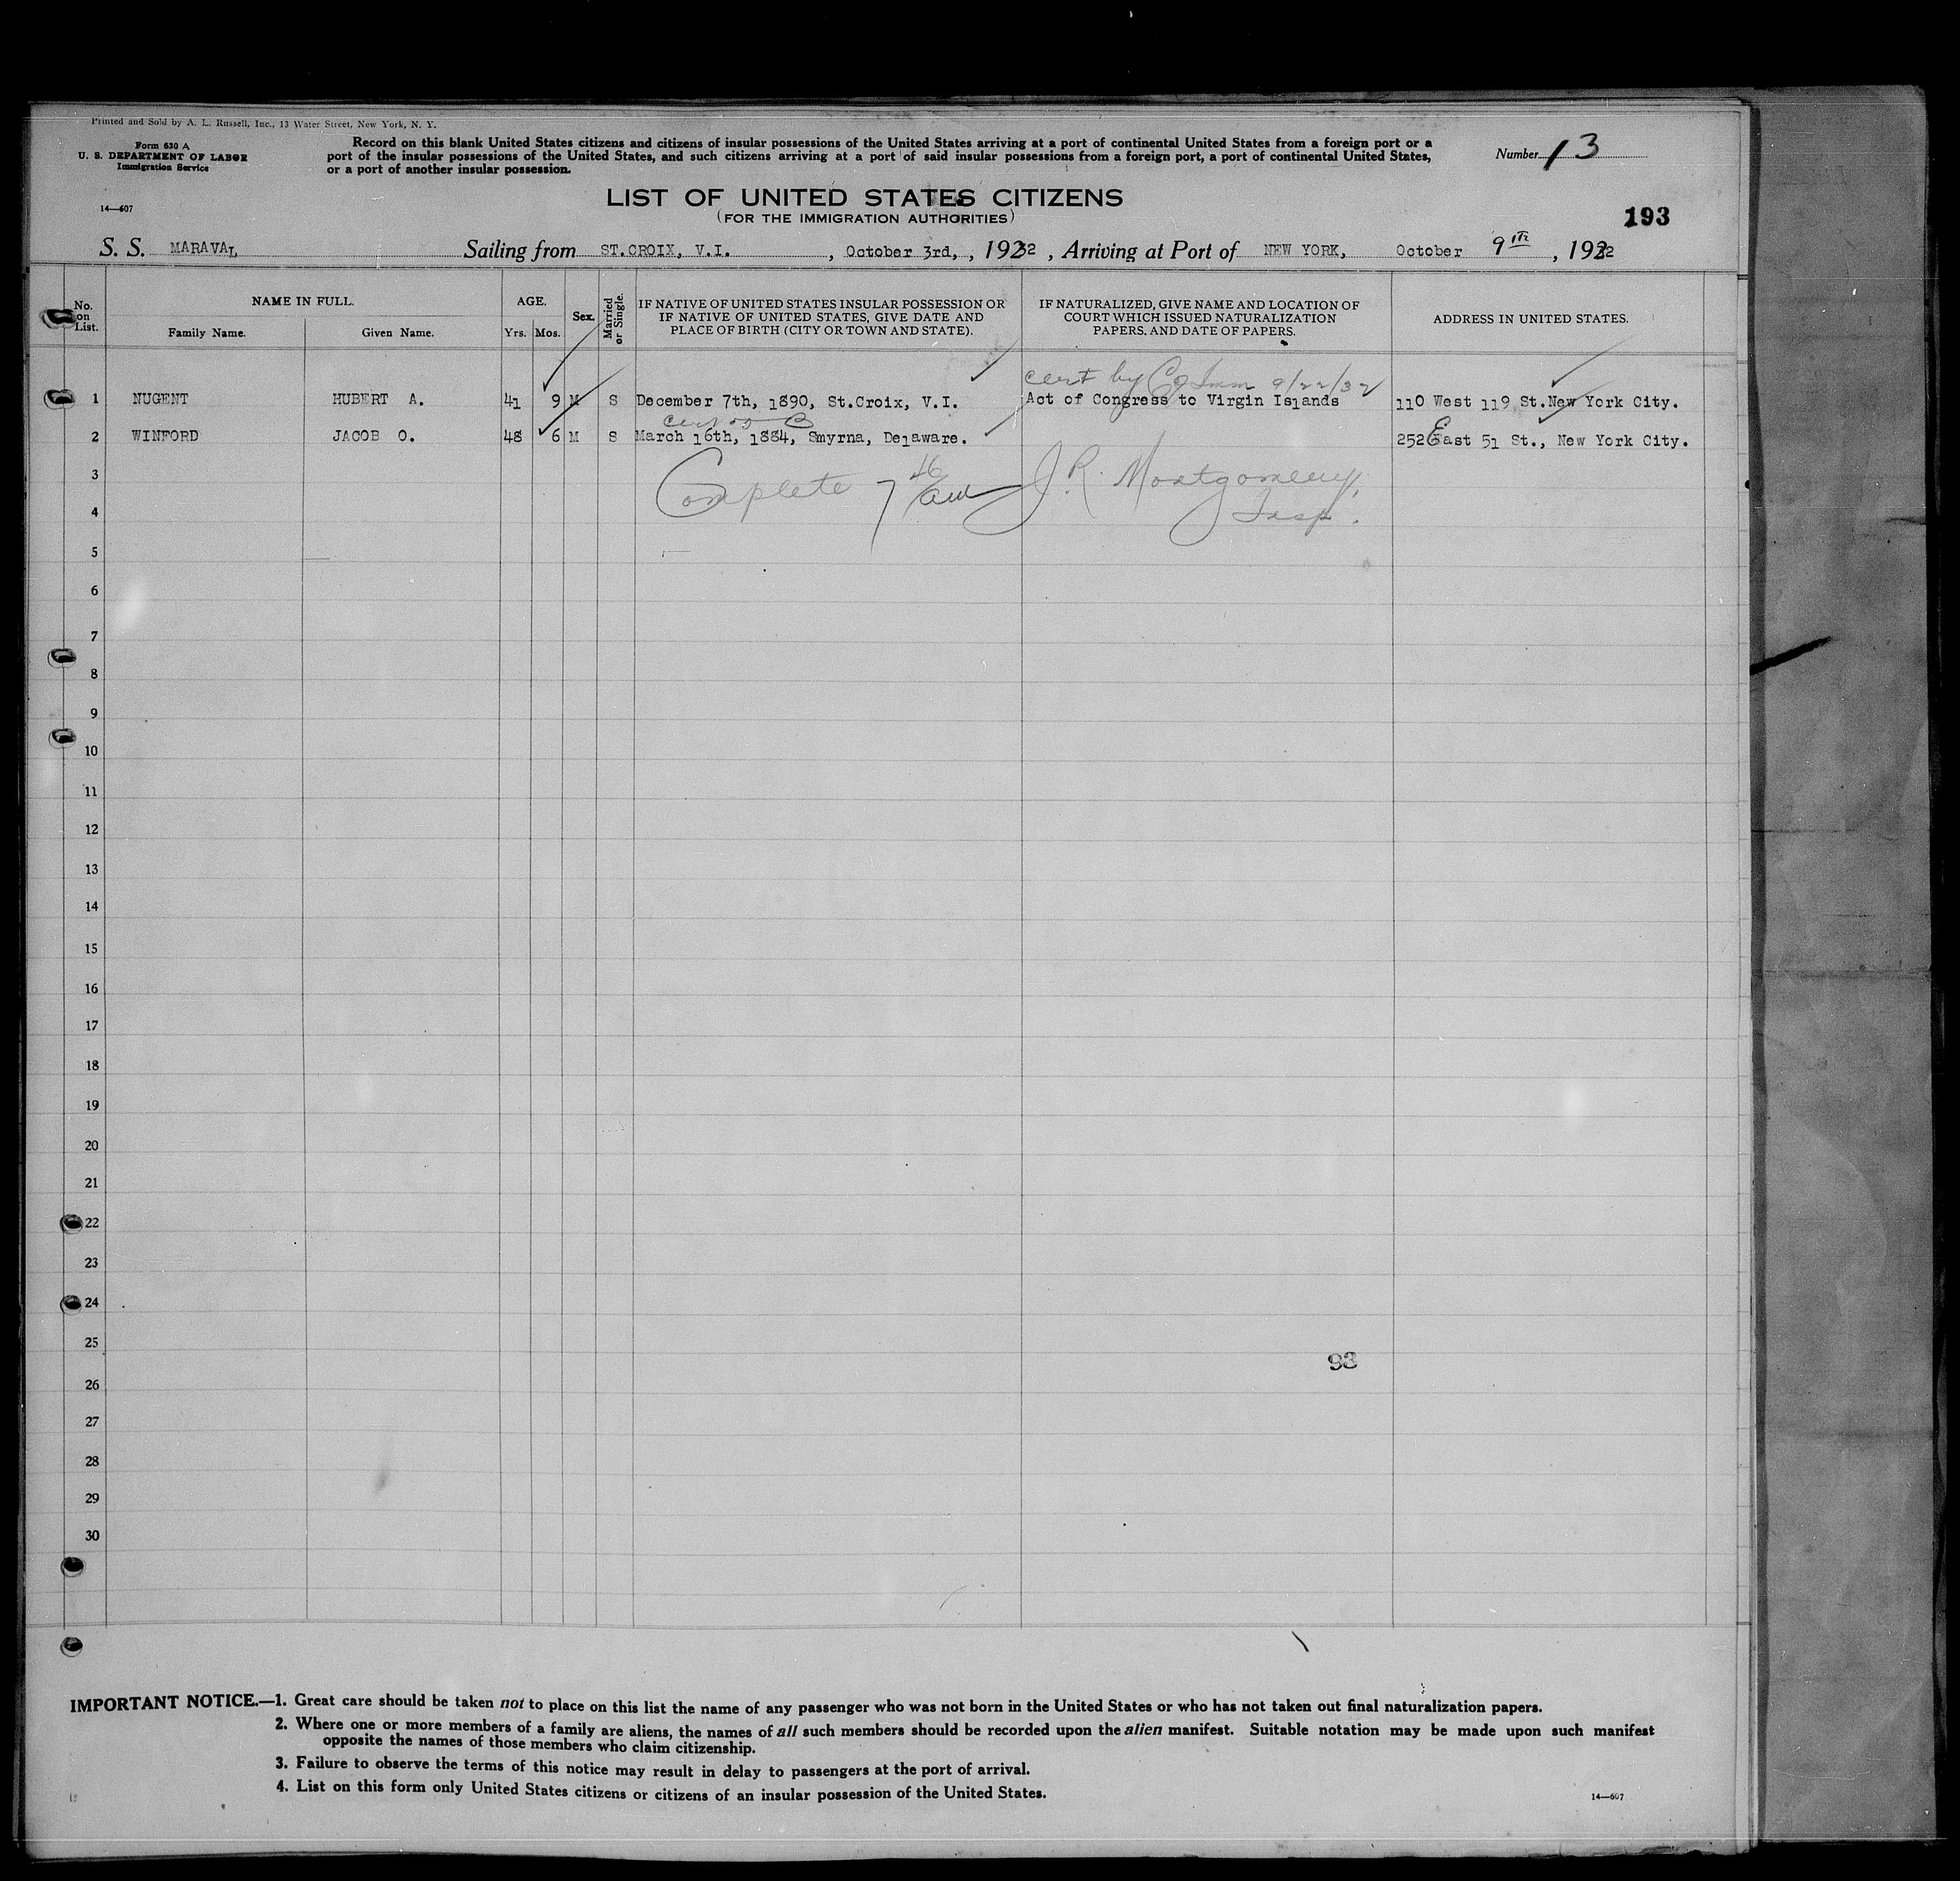 Printed and Sold by A. L. Russell, Inc., 13 Water Street, New York, N. Y.
Form 630 A
U. S. DEPARTMENT OF LABOR
Immigration Service
14—607
Record on this blank United States citizens and citizens of insular possessions of the United States arriving at a port of continental United States from a foreign port or a
port of the insular possessions of the United States, and such citizens arriving at a port of said insular possessions from a foreign port, a port of continental United States,
or a port of another insular possession.
Number 13
LIST OF UNITED STATES CITIZENS
(FOR THE IMMIGRATION AUTHORITIES)
193
S. S. MARAVAL Sailing from ST.CROIX, V.I. , October 3rd, , 1932 , Arriving at Port of NEW YORK, October 9th , 1932
No. on List.
NAME IN FULL.
Family Name. Given Name.
AGE.
Yrs. Mos.
Sex.
Married or Single.
IF NATIVE OF UNITED STATES INSULAR POSSESSION OR
IF NATIVE OF UNITED STATES, GIVE DATE AND
PLACE OF BIRTH (CITY OR TOWN AND STATE).
IF NATURALIZED, GIVE NAME AND LOCATION OF
COURT WHICH ISSUED NATURALIZATION
PAPERS, AND DATE OF PAPERS.
ADDRESS IN UNITED STATES.
cert by Imm 9/22/32
1 NUGENT HUBERT A. 41 9 M S December 7th, 1890, St.Croix, V.I. Act of Congress to Virgin Islands 110 West 119 St.New York City.
2 WINFORD JACOB O. 48 6 M S March 16th, 1884, Smyrna, Delaware. 252 East 51 St., New York City.
3
Complete 7 46 am J. R. Montgomery,
4
Insp.
5
6
7
8
9
10
11
12
13
14
15
16
17
18
19
20
21
22
23
24
25
93
26
27
28
29
30
IMPORTANT NOTICE.—1. Great care should be taken not to place on this list the name of any passenger who was not born in the United States or who has not taken out final naturalization papers.
2. Where one or more members of a family are aliens, the names of all such members should be recorded upon the alien manifest. Suitable notation may be made upon such manifest
opposite the names of those members who claim citizenship.
3. Failure to observe the terms of this notice may result in delay to passengers at the port of arrival.
4. List on this form only United States citizens or citizens of an insular possession of the United States.
14—607